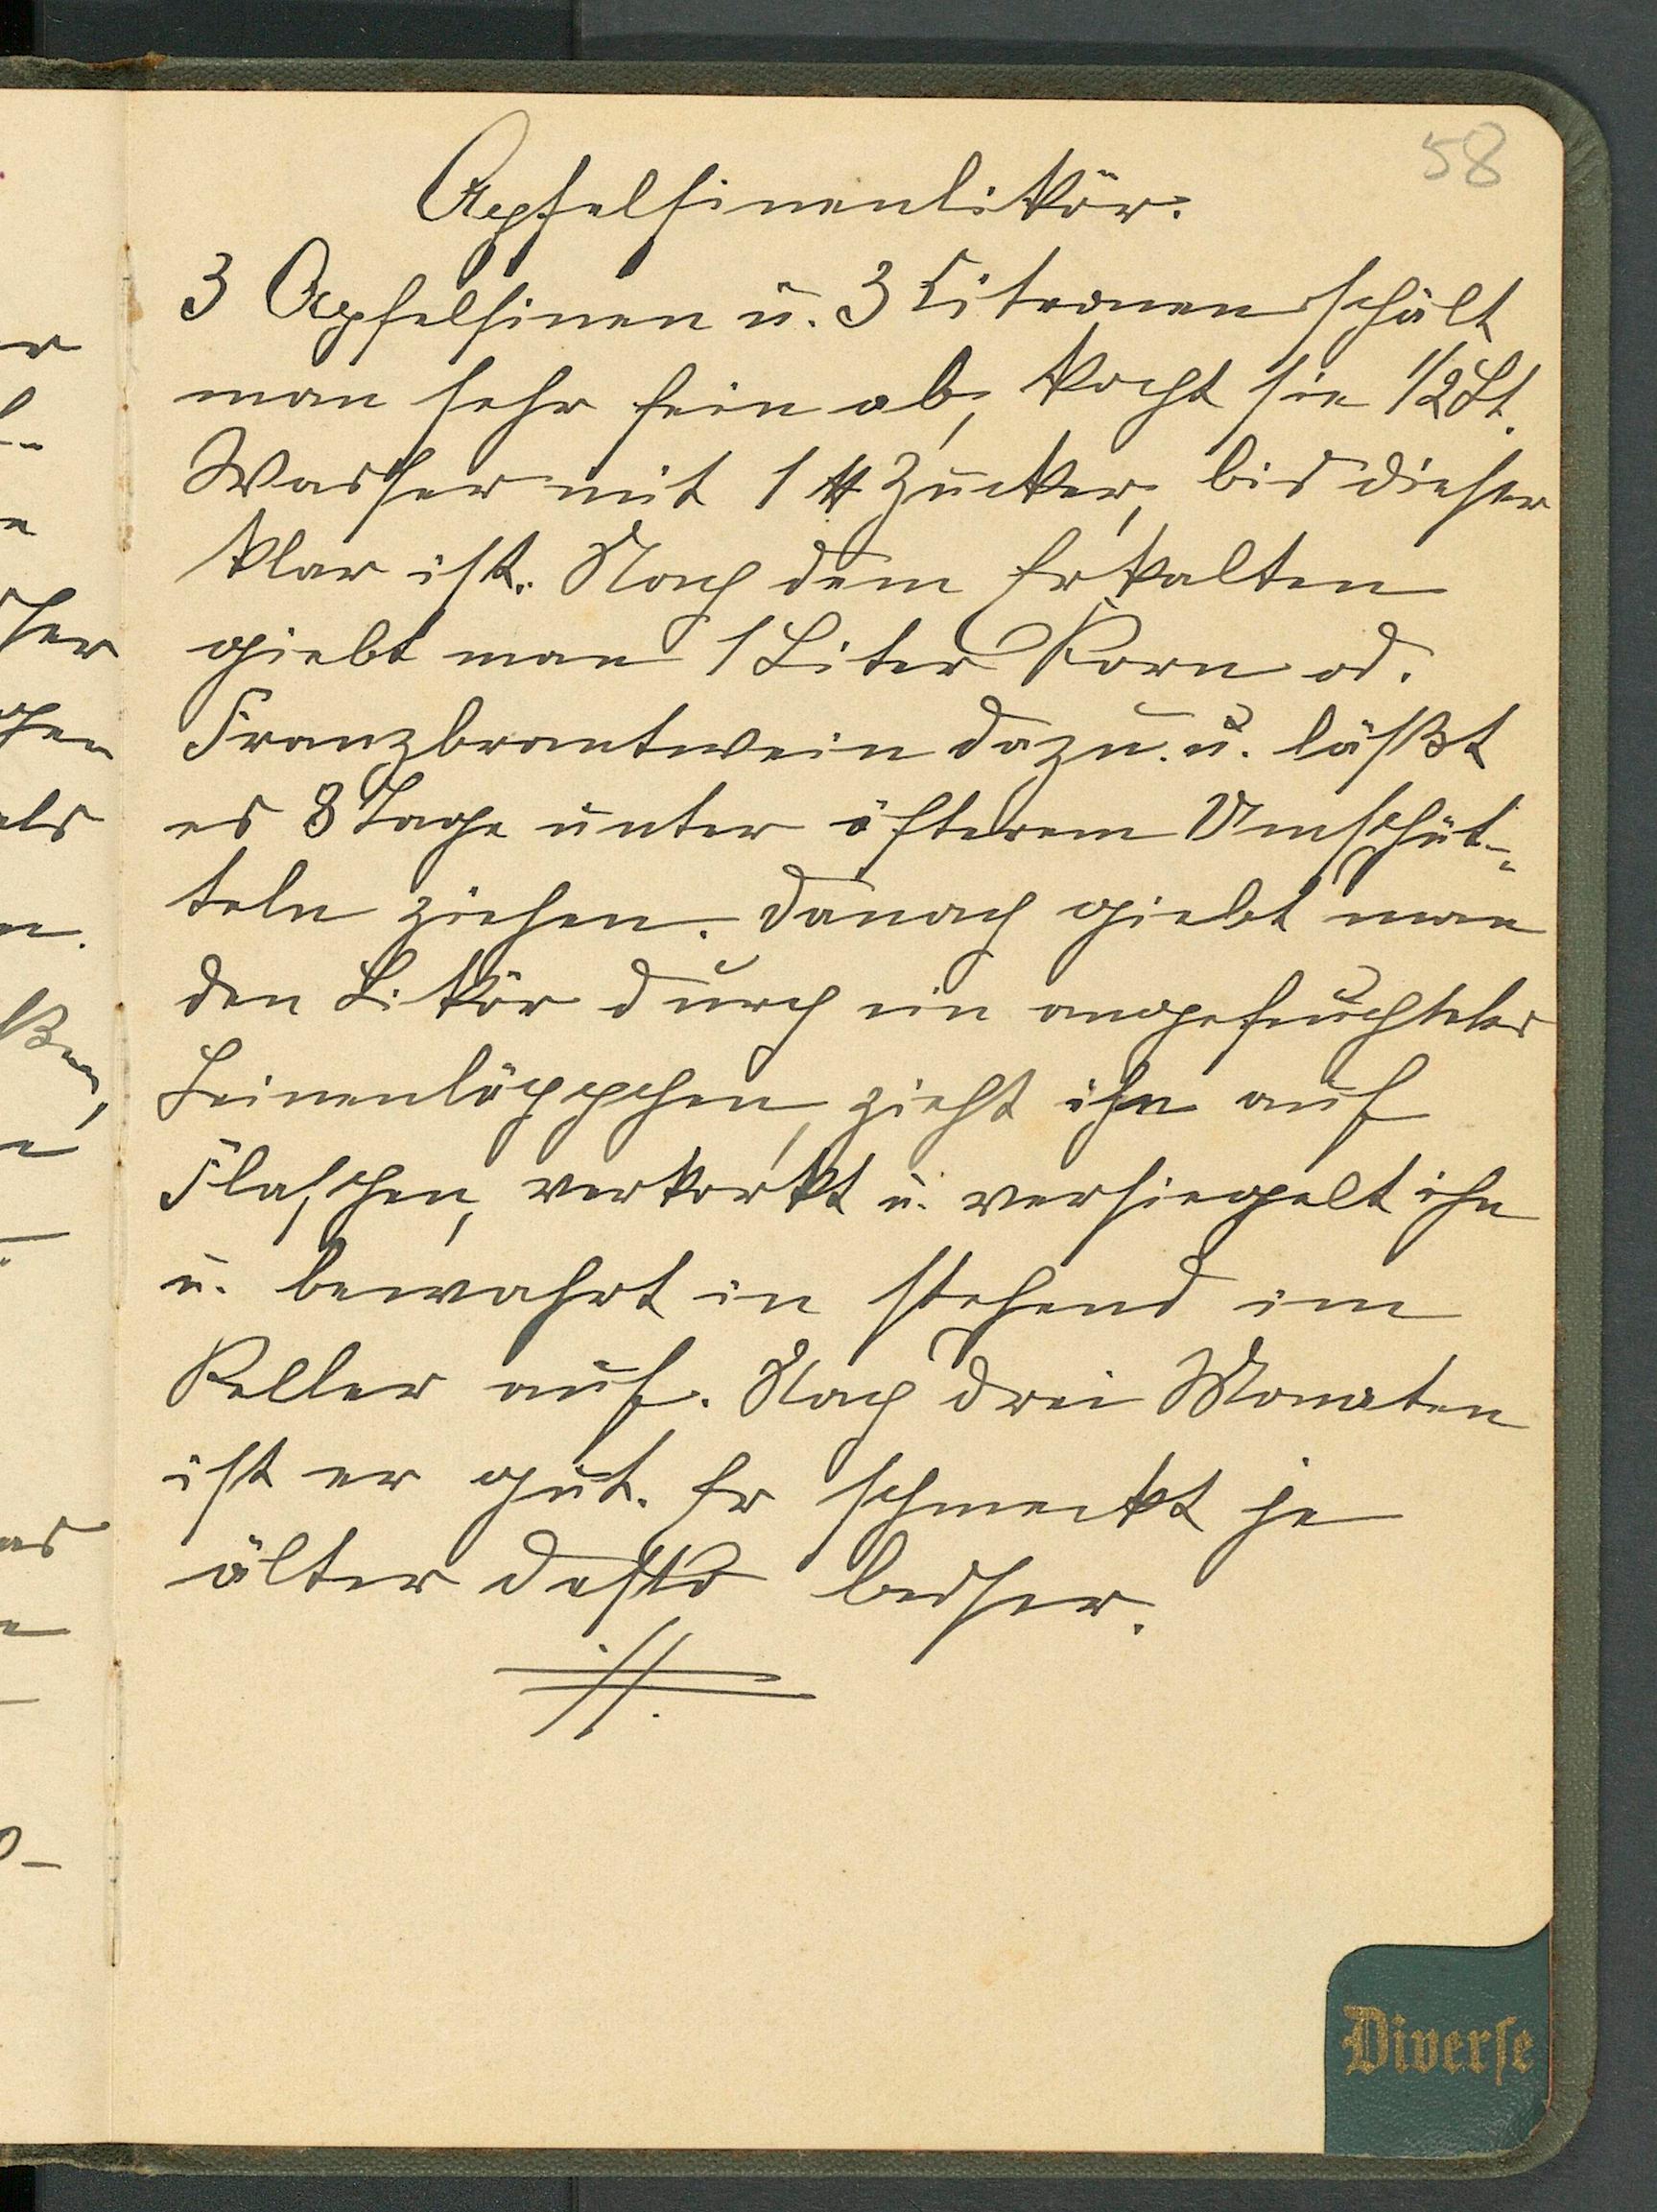 58
Apfelsinenlikör.
3 Apfelsinen u. 3 Citronen schält
man sehr fein ab, kocht sie 1/2 Lt.
Wasser mit 1 ℔ Zucker, bis dieser
klar ist. Nach dem Erkalten
giebt man 1 Liter Korn od.
Franzbrantwein dazu. u. läßt
es 8 Tage unter öfterem Umschüt-
teln ziehen. Danach giebt man
den Likör durch ein angefeuchtetes
Leinenläppchen, zieht ihn auf
Flaschen, verkorkt u. versiegelt ihn
u. bewahrt in stehend im
Keller auf. Nach drei Monaten
ist er gut. Er schmeckt je
älter desto besser.
Diverse